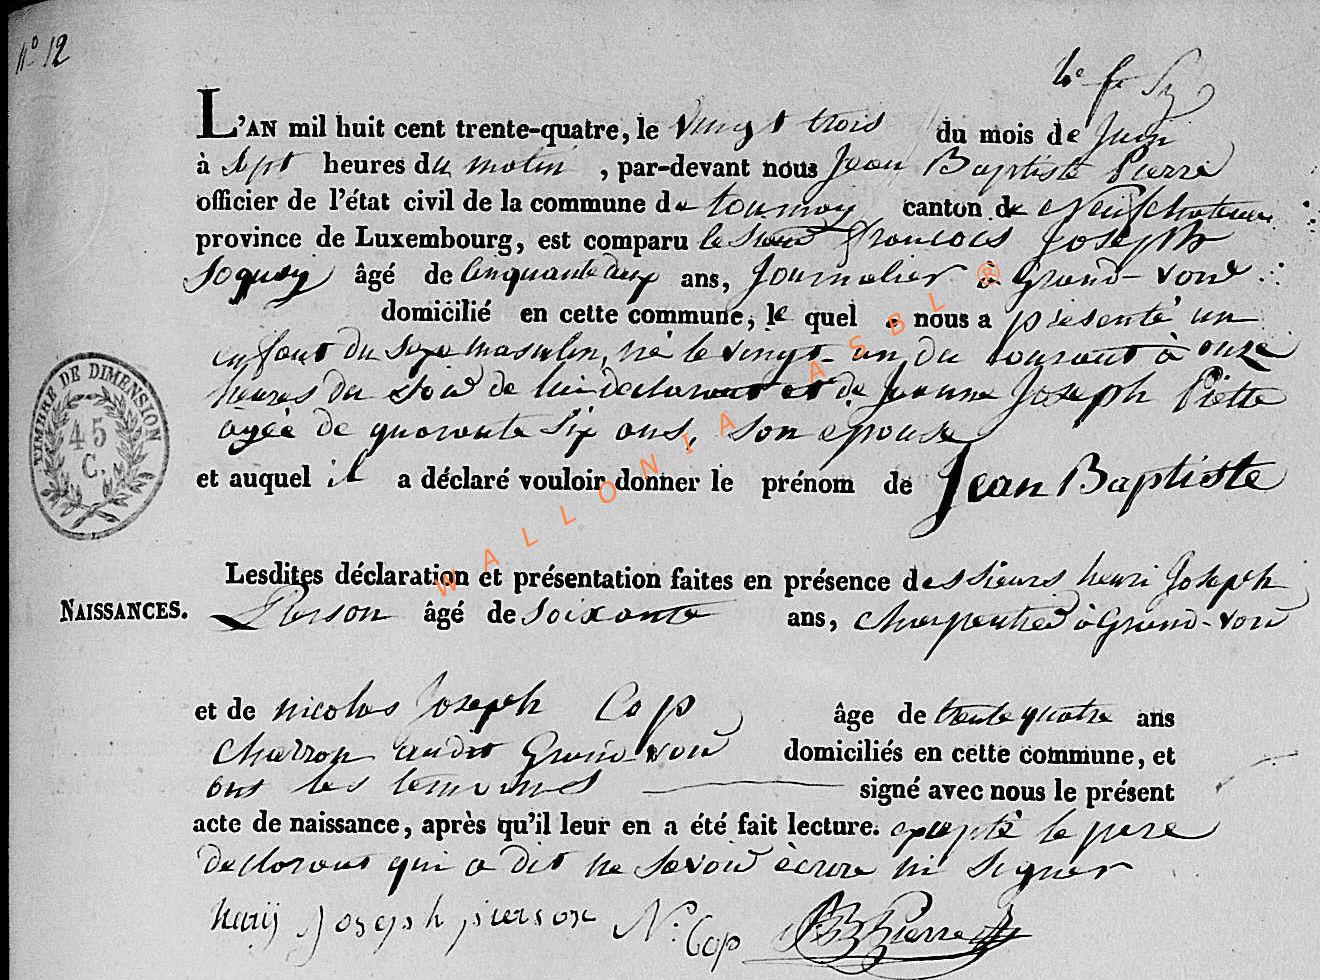 N° 12
L'AN mil huit cent trente-quatre, le vingt trois du mois de juin
à sept heures du matin, par-devant nous Jean Baptiste Pierre
officier de l'état civil de la commune de tournay canton de neufchateau
province de Luxembourg, est comparu le Sieur françois Joseph
âgé de cinquante deux ans, Journalier à Grand-voir
domicilié en cette commune, le quel nous a présenté un
enfant du sexe masculin, né le vingt-un du courant à onze
heures du soir de lui déclarant et de Jeanne Joseph Piette
agée de quarante six ans, son epouse
et auquel il a déclaré vouloir donner le prénom de Jean Baptiste
TIMBRE DE DIMENSION
45 C.
Lesdites déclaration et présentation faites en présence des Sieurs henri Joseph
NAISSANCES. Pierson âgé de soixante ans, charpentier à Grand-voir
et de nicolas Joseph Cop âgé de trente quatre ans
charron audit Grand-voir domiciliés en cette commune, et
ont les temoins signé avec nous le présent
acte de naissance, après qu'il leur en a été fait lecture. excepté le pere
declarant qui a dit ne savoir écrire ni signer
henry Joseph pierson N. Cop JB Pierre
WALLONIA ASBL ®